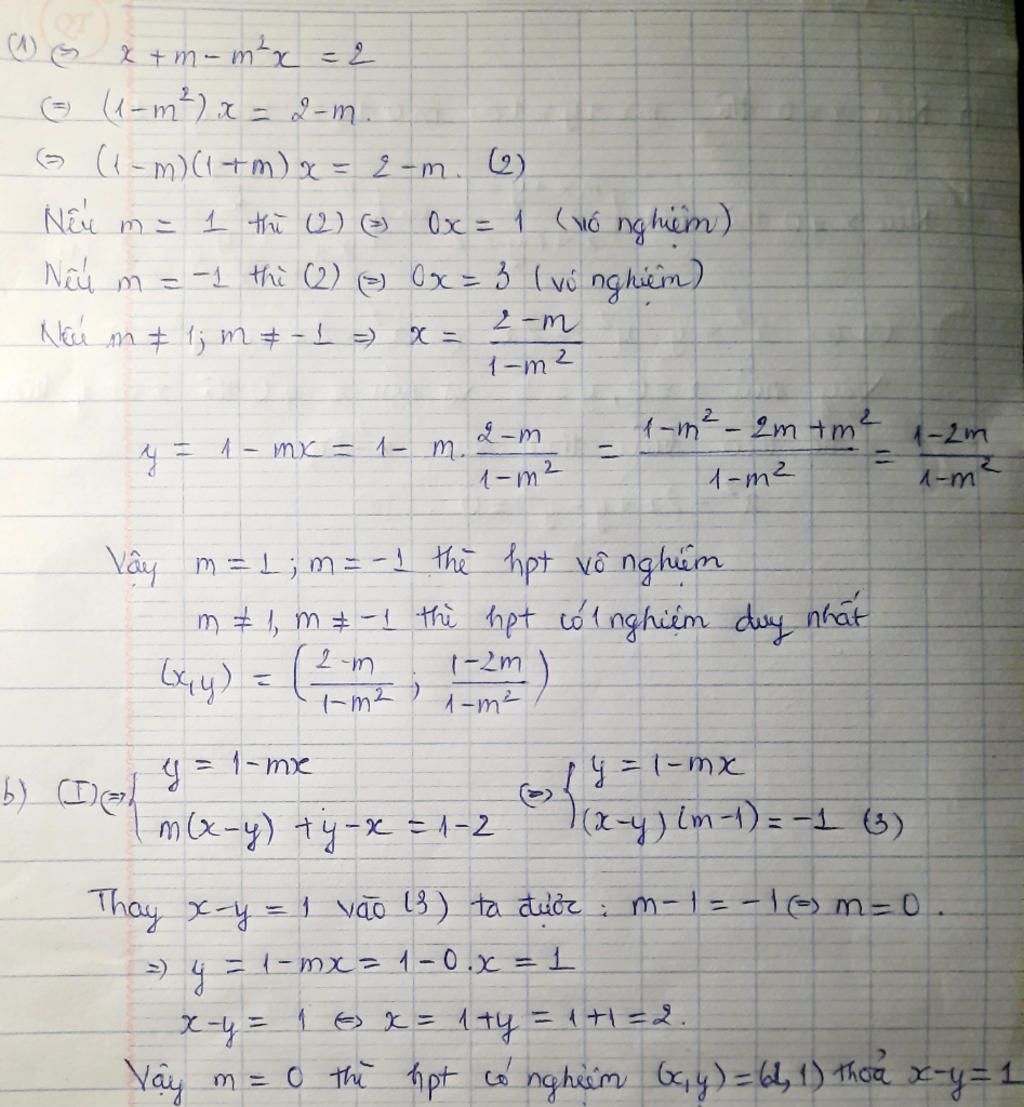 (1) ⇔ x + m - m²x = 2
⇔ (1-m²) x = 2-m.
⇔ (1-m)(1+m) x = 2-m. (2)
Nếu m = 1 thì (2) ⇔ 0x = 1 (vô nghiệm)
Nếu m = -1 thì (2) ⇔ 0x = 3 (vô nghiệm)
Nếu m ≠ 1; m ≠ -1 ⇒ x = (2-m)/(1-m²)
y = 1 - mx = 1 - m. (2-m)/(1-m²) = (1-m²-2m+m²)/(1-m²) = (1-2m)/(1-m²)
Vậy m = 1; m = -1 thì hpt vô nghiệm
m ≠ 1, m ≠ -1 thì hpt có 1 nghiệm duy nhất
(x,y) = ((2-m)/(1-m²); (1-2m)/(1-m²))
b) (I) ⇔ { y = 1-mx ⇔ { y = 1-mx
m(x-y) + y-x = 1-2 (x-y)(m-1) = -1 (3)
Thay x-y = 1 vào (3) ta được: m-1 = -1 ⇔ m = 0.
⇒ y = 1-mx = 1-0.x = 1
x-y = 1 ⇔ x = 1+y = 1+1 = 2.
Vậy m = 0 thì hpt có nghiệm (x,y) = (2,1) thoả x-y = 1